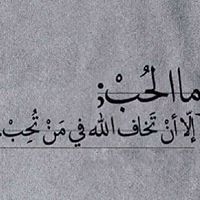 ما الحُبْ؛
إلّا أنْ تَخاف الله في مَنْ تُحِبْ.